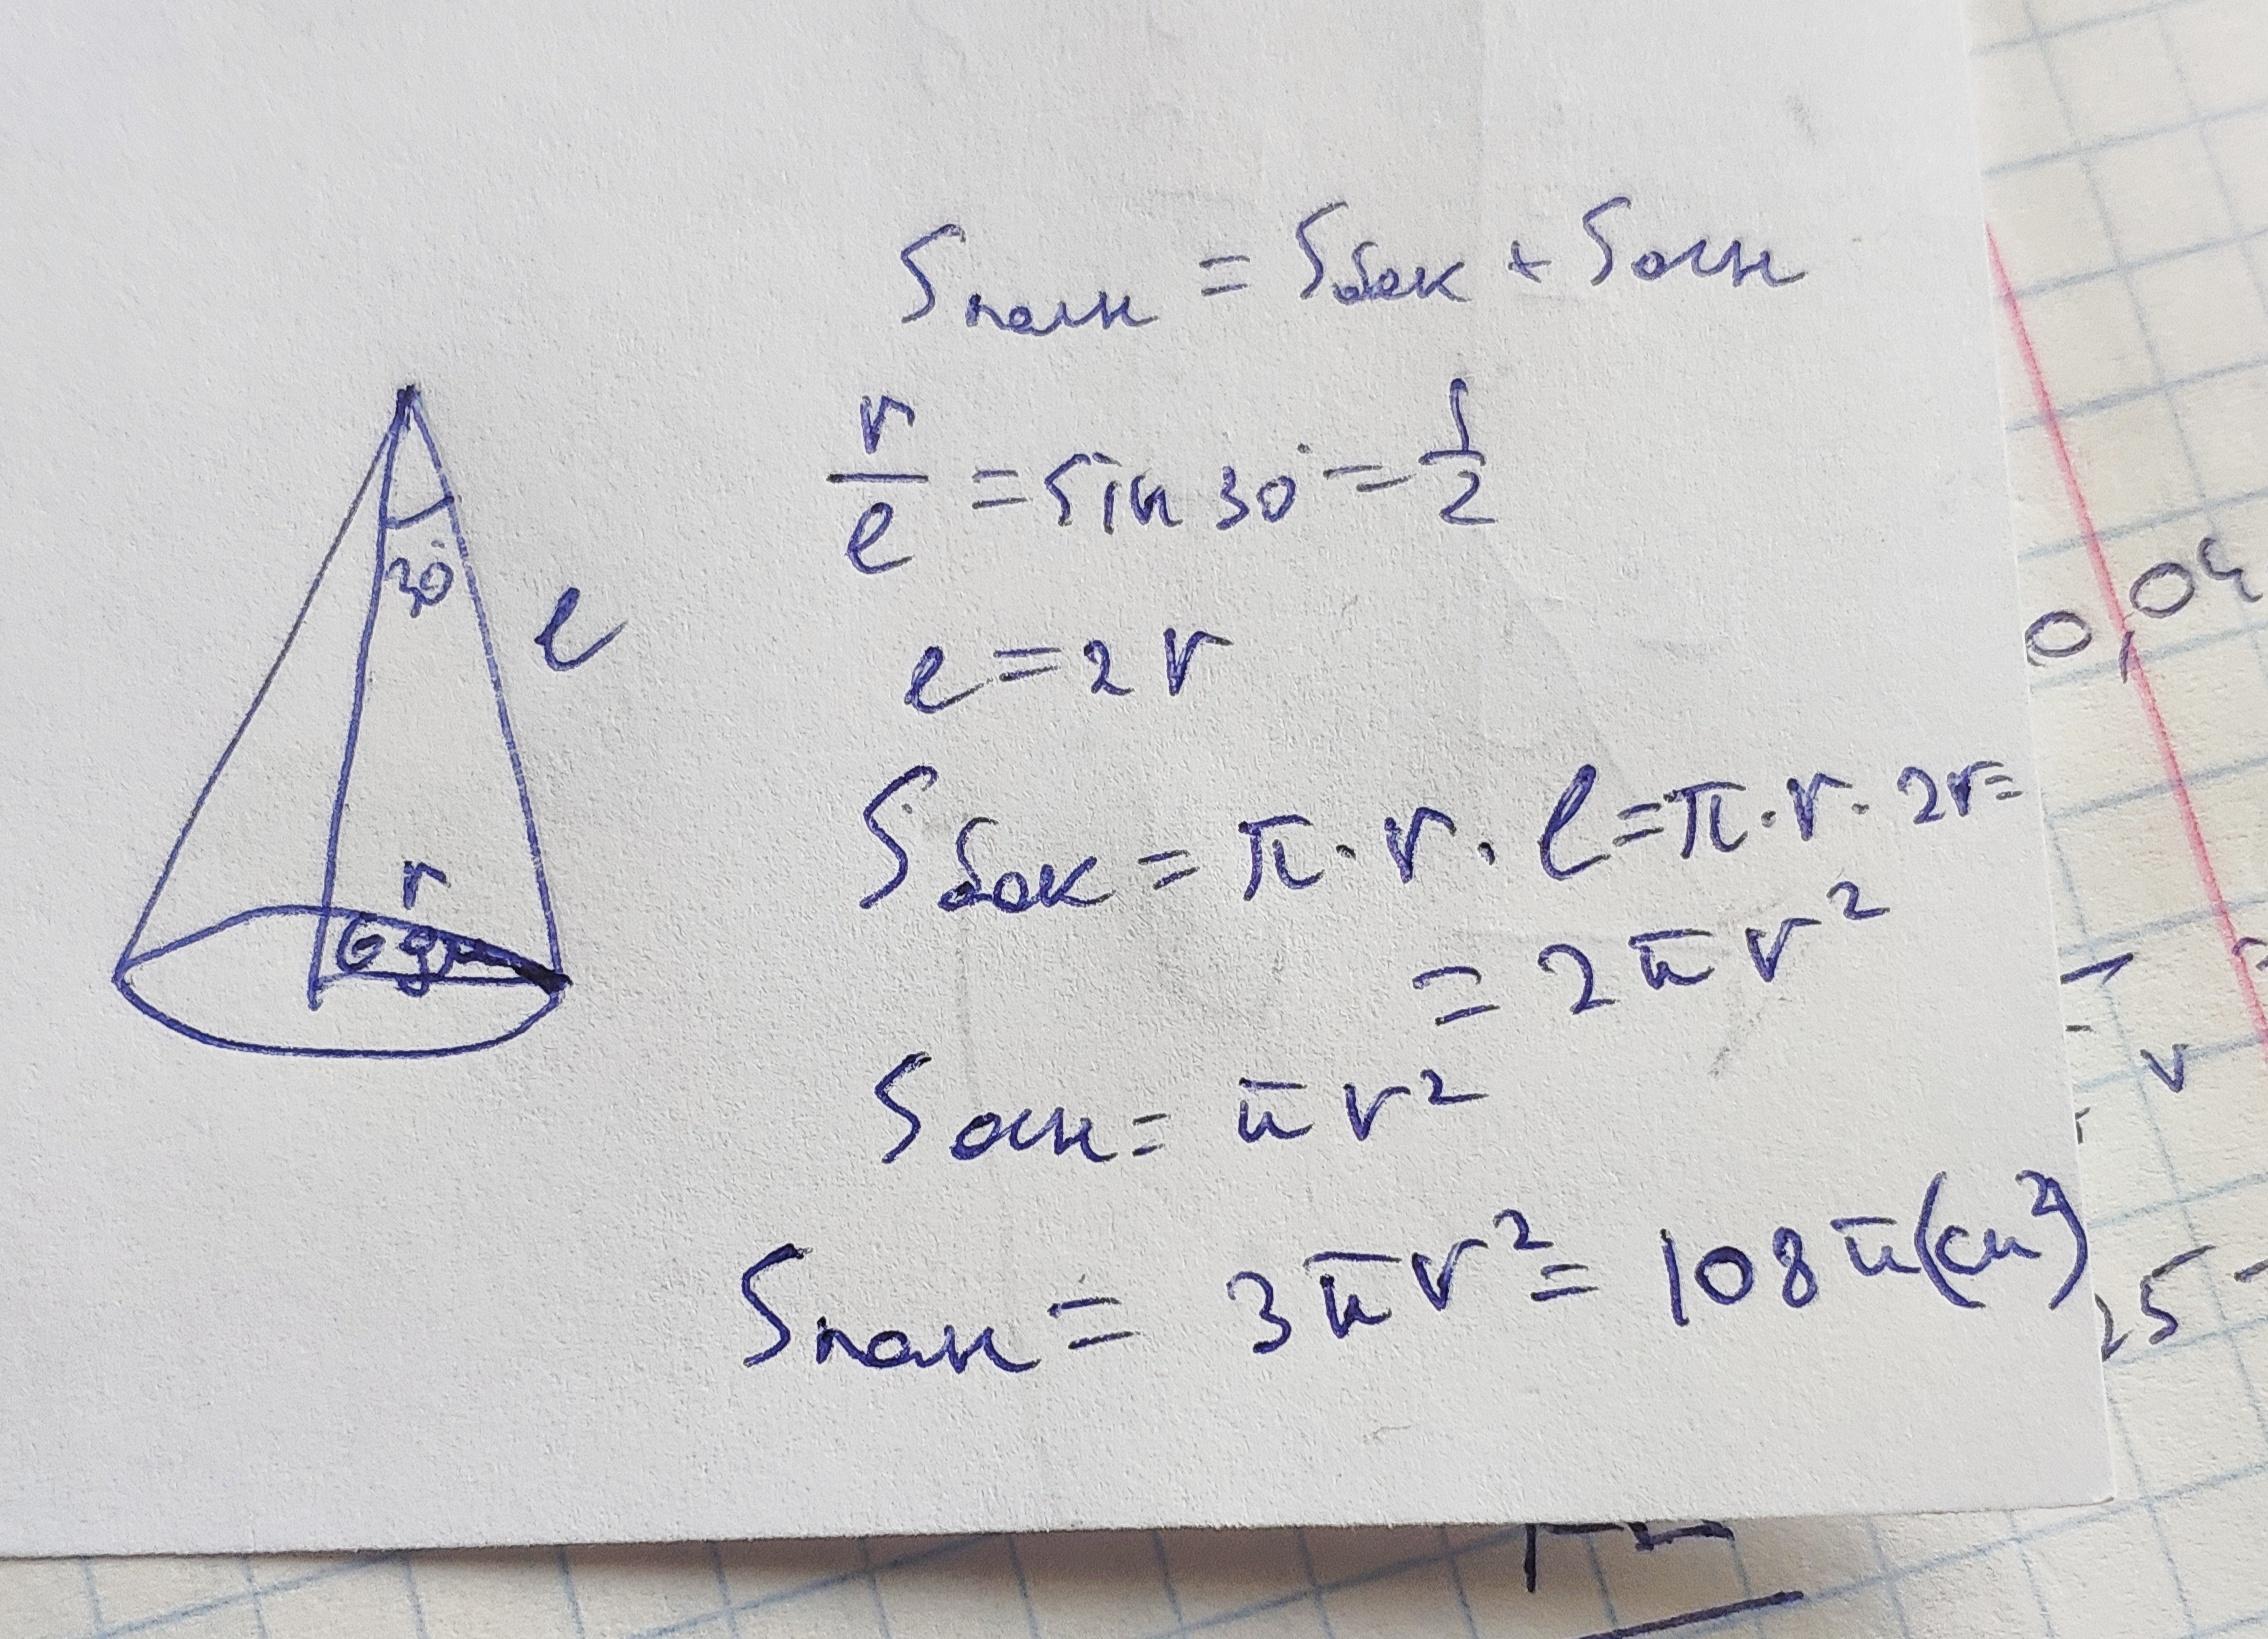 Sполн = Sбок + Sосн
r/l = sin 30° = 1/2
l = 2r
Sбок = π · r · l = π · r · 2r =
= 2πr²
Sосн = πr²
Sполн = 3πr² = 108π(см²)
30°
l
r
6 дм
0,04
25